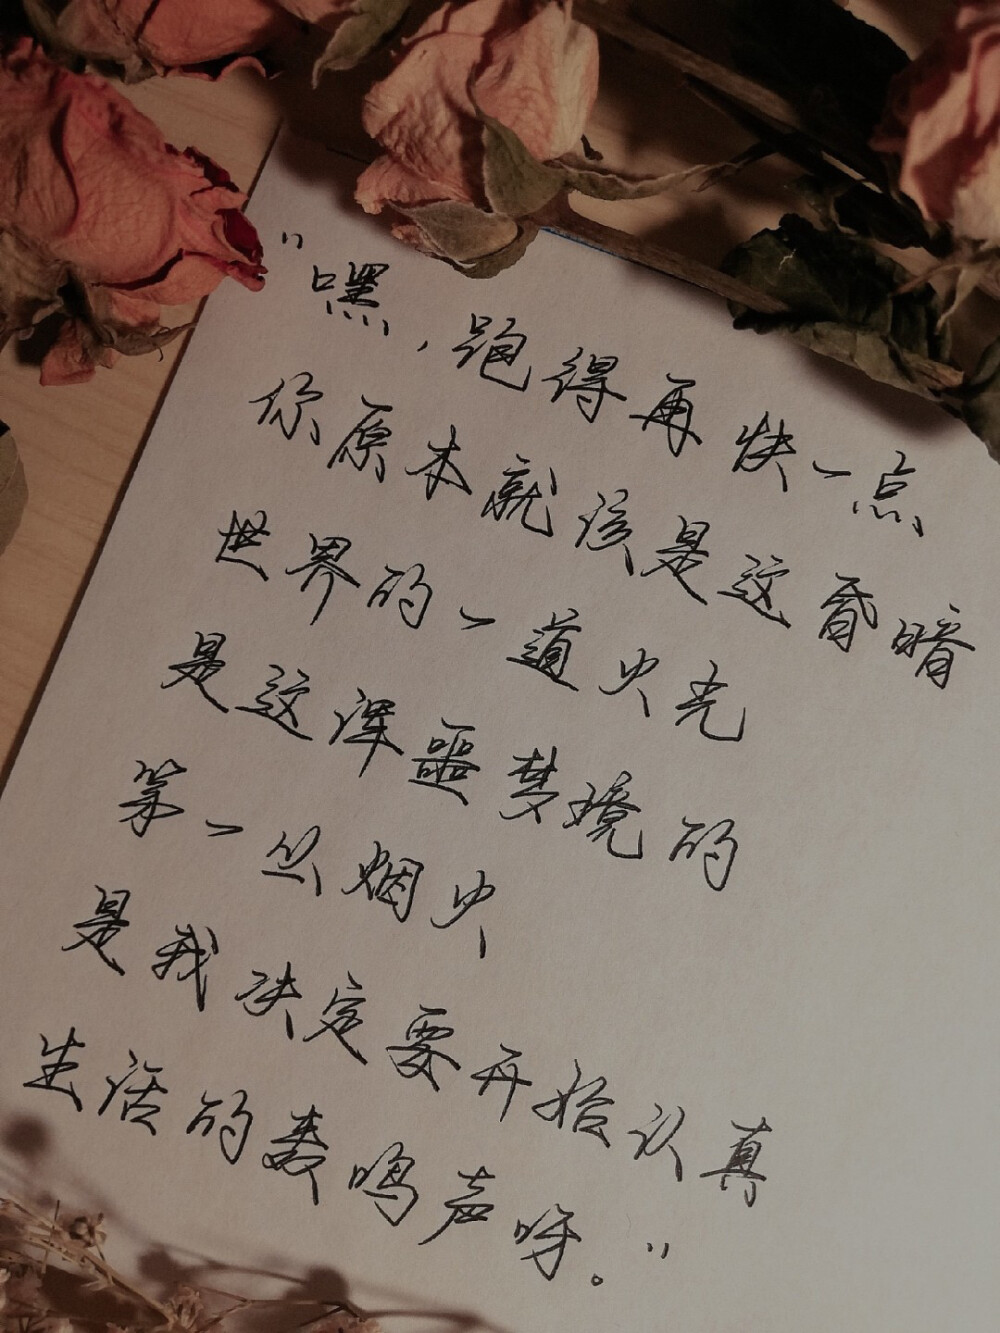 "嘿，跑得再快一点
你原本就该是这昏暗
世界的一道火光
是这浑噩梦境的
第一丛烟火
是我决定要开始认真
生活的轰鸣声呀。"